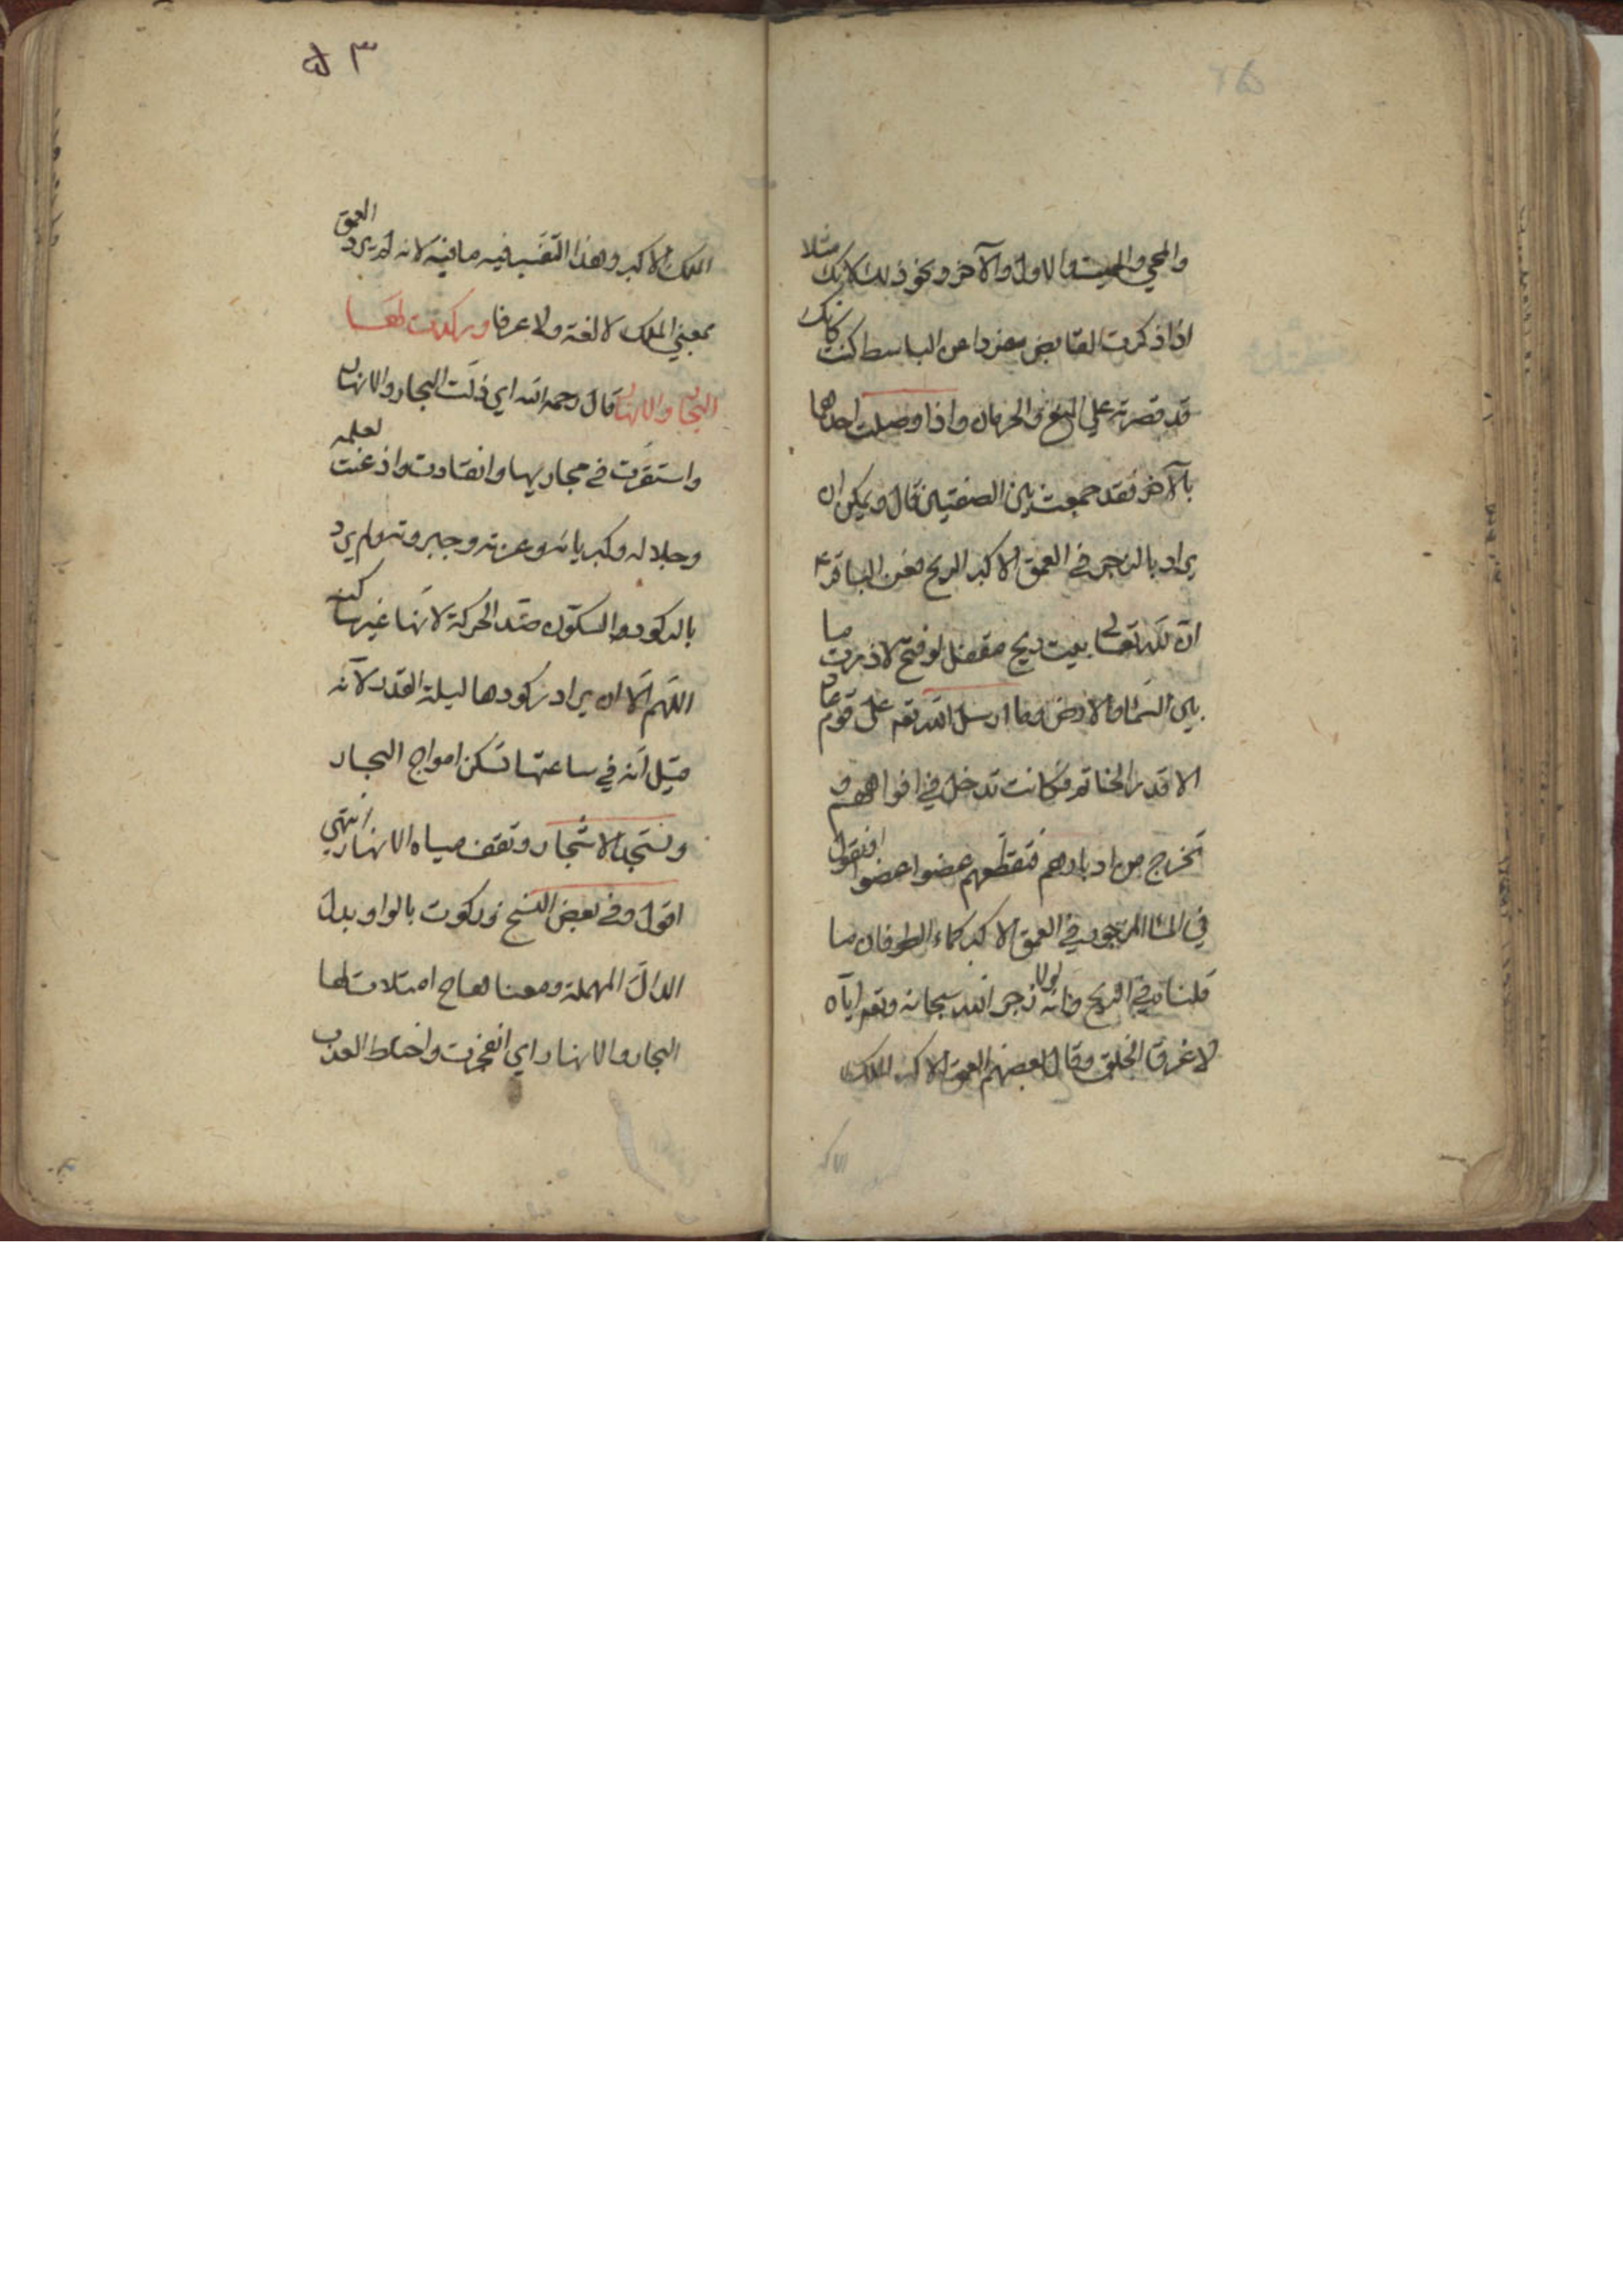 والمحيي والمميت والاول والآخر ونحو ذلك لانك مثلا
اذا ذكرت القابض مفردا عن الباسط كنت كانك
قد قصرته علي المنع والحرمان واذا وصلت احدهما
بالآخر فقد جمعت بين الصفتين قال ويمكن ان
يراد بالزجر في العمق الاكبر الريح فعن الباقر ع
ان لله تعالي بيت ريح مقفل لو فتح لاذرت ما
بين السماء والارض وما ارسل الله تعم على قوم عاد
الا قدر الخاتم فكانت تدخل في افواههم و
تخرج من ادبارهم فتقطعهم عضوا عضوا او نقول
في الماء المزجور في العمق الاكبر كماء الطوفان ما
قلناه في الريح فانه لولا زجر الله سبحانه وتعم اياه
لاغرق الخلق وقال بعضهم العمق الاكبر الملك
الاكبر
٣٥
الملك الاكبر وهذا التفسير فيه ما فيه لانه لم يرد العمق
بمعني الملك لا لغة ولا عرفا وركدت لها
البحار والانهار قال رحمه الله اي ذلت البحار والانهار
واستقرت في مجاريها وانقادت واذعنت لعلمه
وجلاله وكبريائه وعزته وجبروته ولم يرد
بالركود والسكون ضد الحركة لانها غير ساكنه
اللهم الا ان يراد ركودها ليلة القدر لانه
قيل انه في ساعتها تسكن امواج البحار
وتستجد الاشجار وتقف مياه الانهار انتهي
اقول وفي بعض النسخ وركوت بالواو بدل
الدال المهملة ومعناه هاج امتلات لها
البحار والانهار اي انفجرت واختلط العذب